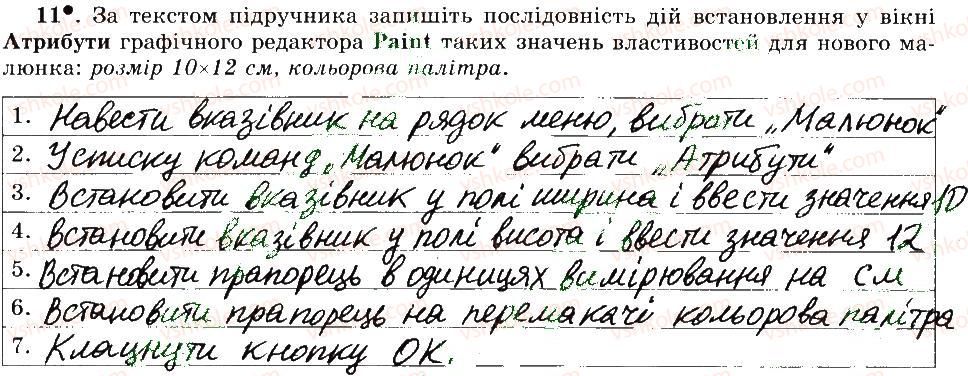 11•. За текстом підручника запишіть послідовність дій встановлення у вікні
Атрибути графічного редактора Paint таких значень властивостей для нового ма-
люнка: розмір 10×12 см, кольорова палітра.
1. Навести вказівник на рядок меню, вибрати „Малюнок“
2. У списку команд „Малюнок“ вибрати „Атрибути“
3. Встановити вказівник у полі ширина і ввести значення 10
4. Встановити вказівник у полі висота і ввести значення 12
5. Встановити прапорець в одиницях вимірювання на см
6. Встановити прапорець на перемакачі кольорова палітра
7. Клацнути кнопку ОК.